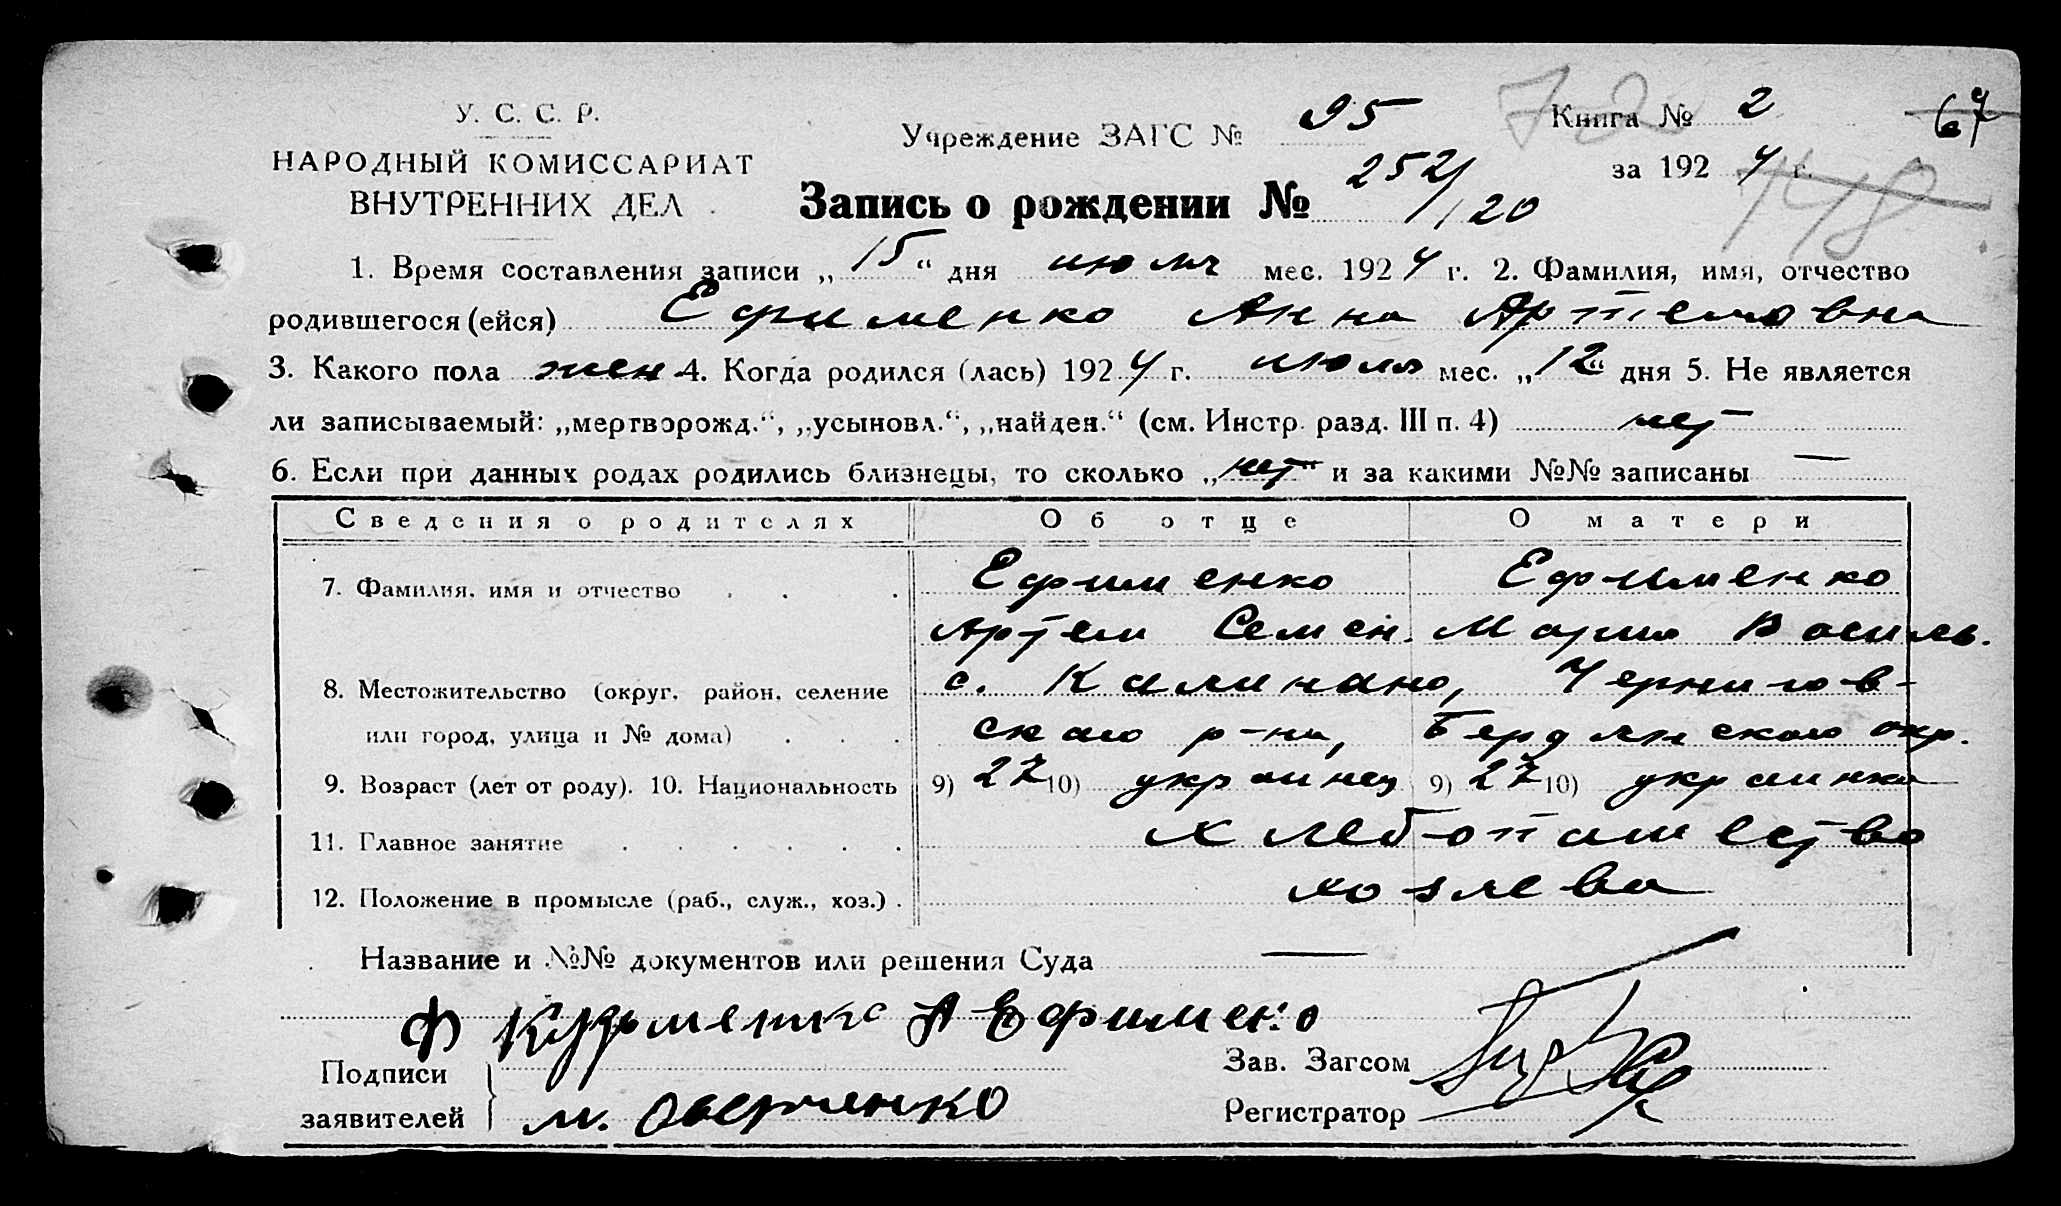 У. С. С. Р.
НАРОДНЫЙ КОМИССАРИАТ
ВНУТРЕННИХ ДЕЛ
Учреждение ЗАГС № 95
Книга № 2
67
за 1924 г.
148
Запись о рождении № 252/120
1. Время составления записи „15“ дня июля мес. 1924 г. 2. Фамилия, имя, отчество
родившегося (ейся) Ефименко Анна Артемовна
3. Какого пола жен 4. Когда родился (лась) 1924 г. июля мес. „12“ дня 5. Не является
ли записываемый: „мертворожд.“, „усыновл.“, „найден.“ (см. Инстр. разд. III п. 4) нет
6. Если при данных родах родились близнецы, то сколько „нет“ и за какими №№ записаны —
Сведения о родителях Об отце О матери
7. Фамилия, имя и отчество . . . Ефименко Ефименко
Артем Семен. Мария Василь.
8. Местожительство (округ, район, селение с. Калинано, Чернигов-
или город, улица и № дома) . . . ского р-на, Бердянского окр.
9. Возраст (лет от роду). 10. Национальность 9) 27 10) украинец 9) 27 10) украинка
11. Главное занятие . . . . . . хлебопашество
12. Положение в промысле (раб., служ., хоз.) . хозяева
Название и №№ документов или решения Суда —
Ф А Ефименко
Подписи
заявителей
М.
Зав. Загсом
Регистратор